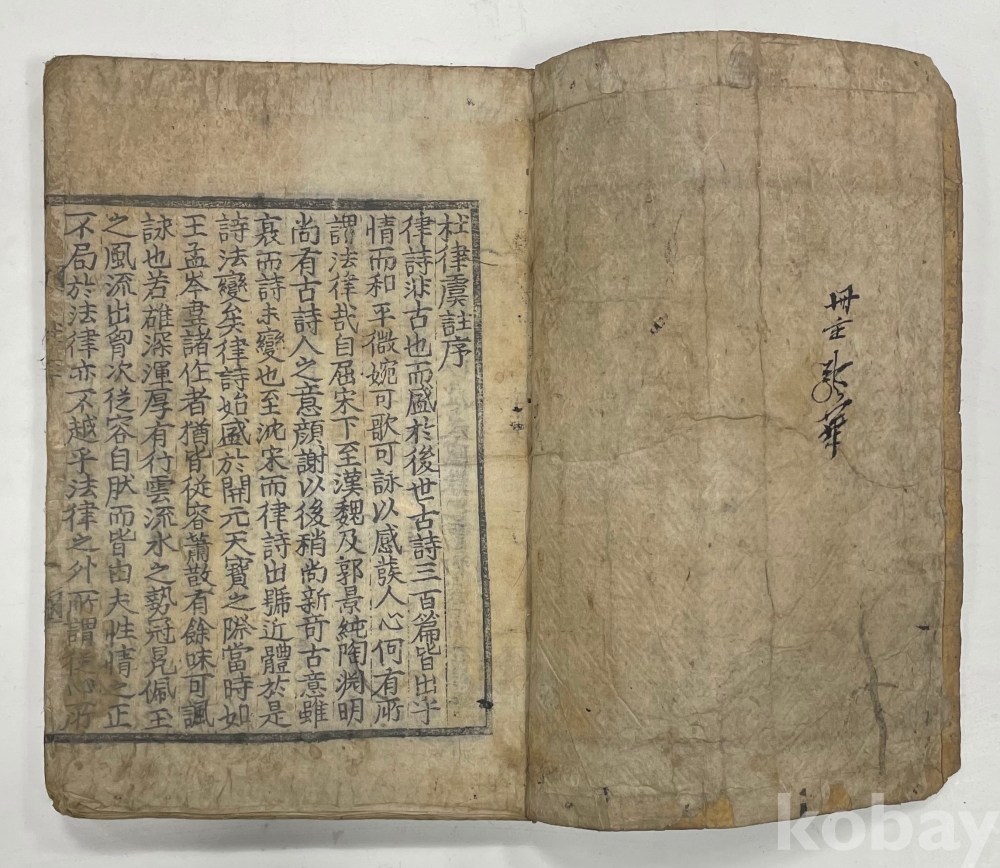 冊主
杜律虞註序
律詩非古也而盛於後世古詩三百篇皆出乎
情而和平微婉可歌可詠以感發人心何有所
謂法律哉自屈宋下至漢魏及郭景純陶淵明
尚有古詩人之意顔謝以後稍尚新奇古意雖
衰而詩未變也至沈宋而律詩出號近體於是
詩法變矣律詩始盛於開元天寶之際當時如
王孟岑韋諸作者猶皆從容蕭散有餘味可諷
詠也若雄深渾厚有行雲流水之勢冠冕佩玉
之風流出胷次從容自肰而皆由夫性情之正
不局於法律亦不越乎法律之外所謂從心所
kobay